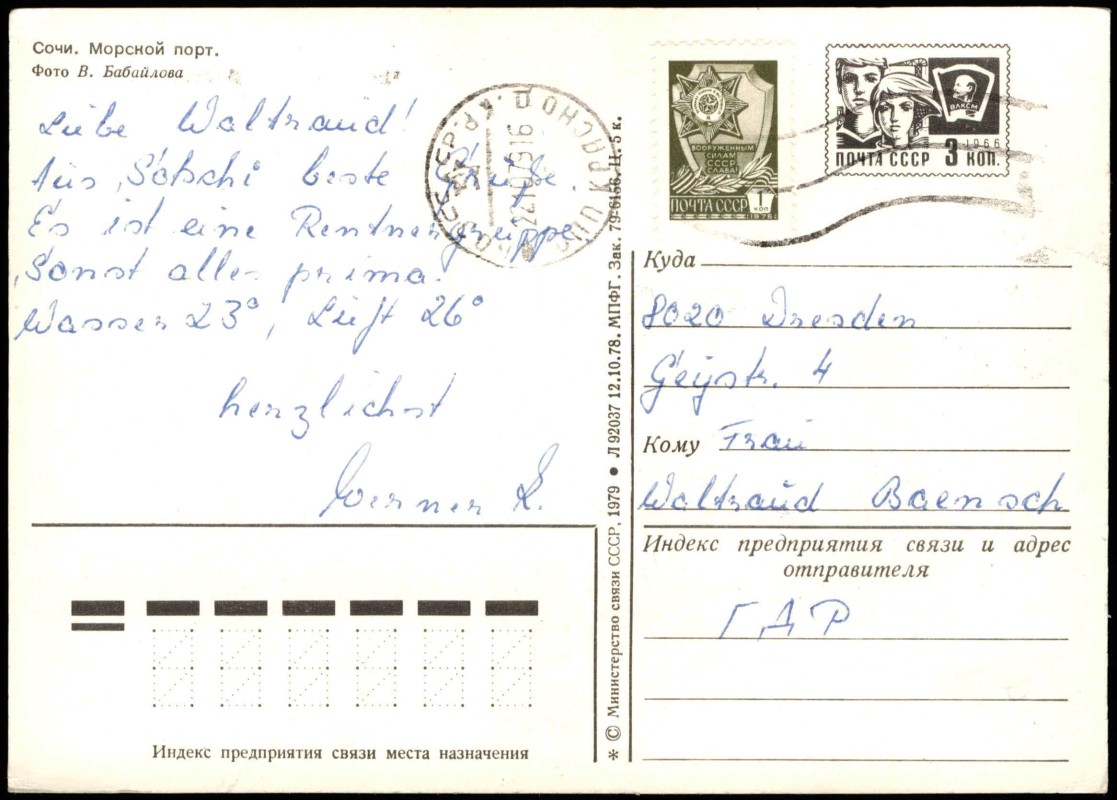 Сочи. Морской порт.
Фото В. Бабайлова
Liebe Waltraud!
Aus Sotschi beste Grüße.
Es ist eine Rentnergruppe.
Sonst alles prima.
Wasser 23°, Luft 26°
herzlichst
Werner L.
Индекс предприятия связи места назначения
* © Министерство связи СССР, 1979 ● Л 92037 12.10.78. МПФГ. Зак. 79-6156. Ц. 5 к.
ВООРУЖЕННЫМ
СИЛАМ
СССР
СЛАВА!
ПОЧТА СССР 1 КОП
1976
ВЛКСМ
1966
ПОЧТА СССР 3 КОП.
Куда
8020 Dresden
Geystr. 4
Кому Frau
Waltraud Baensch
Индекс предприятия связи и адрес
отправителя
ГДР